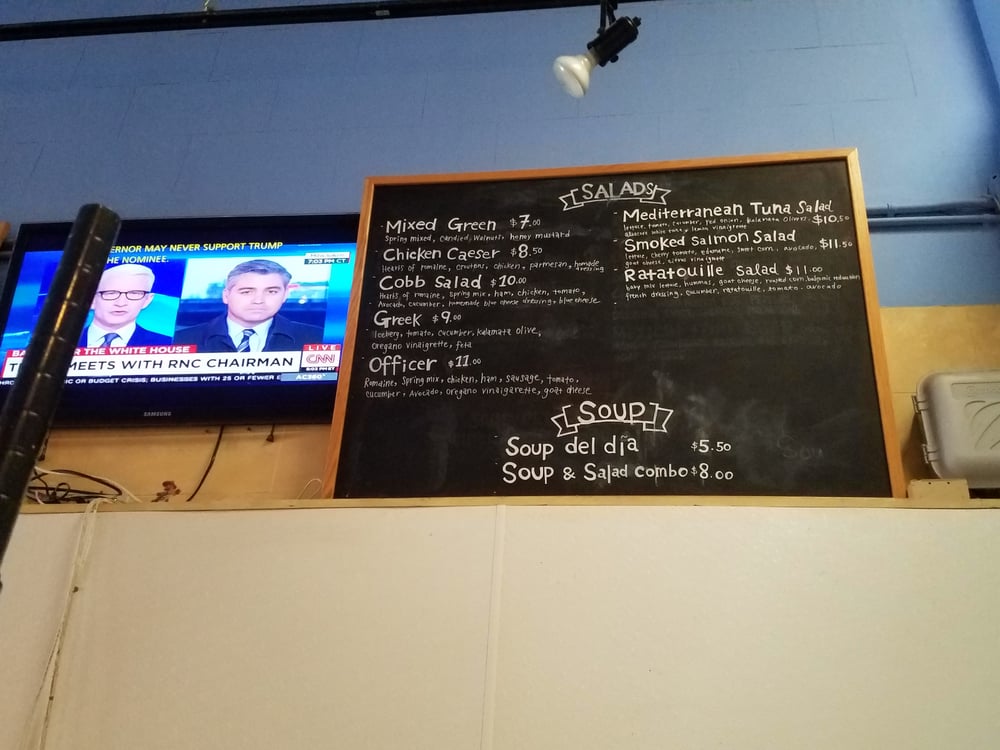 ERNOR MAY NEVER SUPPORT TRUMP
HE NOMINEE.
7:03 PM CT
THE WHITE HOUSE
MEETS WITH RNC CHAIRMAN
LIVE
CNN
IC OR BUDGET CRISIS; BUSINESSES WITH 25 OR FEWER E
AC360°
SAMSUNG
SALADS
Mixed Green $7.00
Spring mixed, Candied, Walnuts, honey mustard
Chicken Caeser $8.50
Hearts of romaine, croutons, chicken, parmesan, homade
dressing
Cobb Salad $10.00
Hearts of romaine, spring mix, ham, chicken, tomato,
Avocado, cucumber, homemade blue cheese dressing, blue cheese
Greek $9.00
Iceberg, tomato, cucumber, kalamata olive,
oregano vinaigrette, feta
Officer $11.00
Romaine, Spring mix, chicken, ham, sausage, tomato,
cucumber, Avocado, oregano vinaigarette, goat cheese
Mediterranean Tuna Salad
lettuce, tomato, cucumber, red onion, kalamata olives $10.50
albacore white tuna, lemon vinaigrette
Smoked Salmon Salad
lettuce, cherry tomato, edamame, corn, avocado, $11.50
goat cheese, citrus vinaigrette
Ratatouille Salad $11.00
baby mix lettuce, hummas, goat cheese, roasted corn, balsamic reduction
french dressing, cucumber, ratatouille, tomato, avocado
SOUP
Soup del día $5.50
Soup & Salad combo $8.00